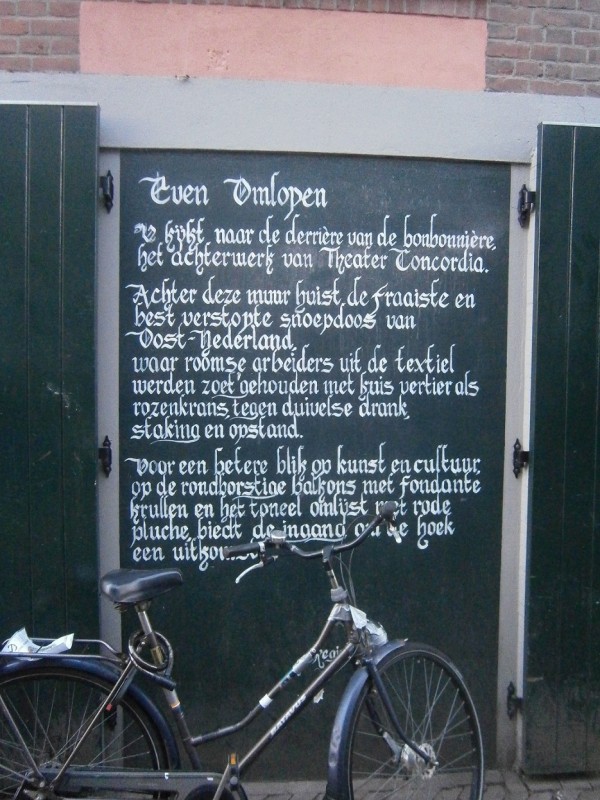 Even Omlopen
U kijkt naar de derrière van de bonbonnière,
het achterwerk van Theater Concordia.
Achter deze muur huist de fraaiste en
best verstopte snoepdoos van
Oost-Nederland,
waar roomse arbeiders uit de textiel
werden zoet gehouden met kuis vertier als
rozenkrans tegen duivelse drank,
staking en opstand.
Voor een betere blik op kunst en cultuur,
op de rondborstige balkons met fondante
krullen en het toneel omlijst met rode
pluche, biedt de ingang om de hoek
een